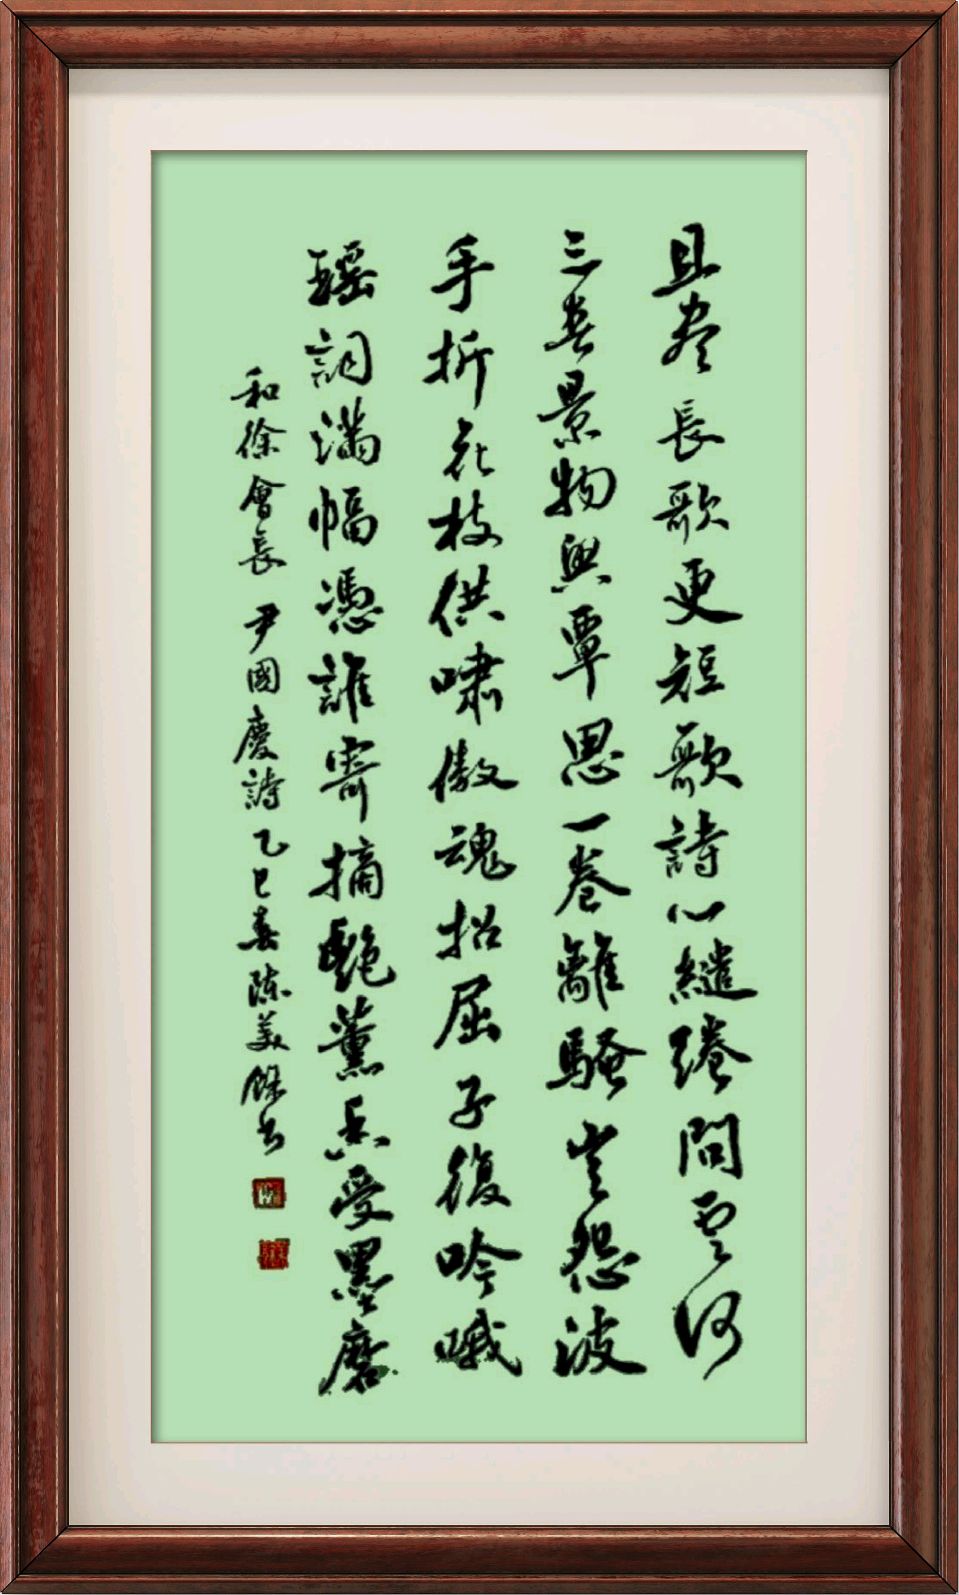 且尽長歌更短歌詩心繾綣問云何
三春景物與覃思一卷離騷豈怨波
手折花枝供嘯傲魂招屈子復吟哦
瑤詞滿幅憑誰寄摘艷薰香受墨磨
和徐會長 尹國慶詩 乙巳春陈美书